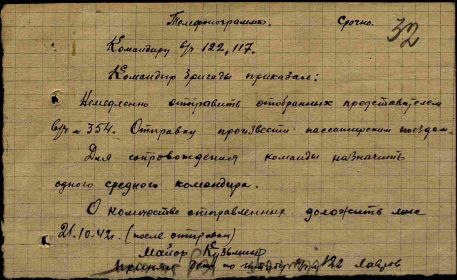 Телефонограмма. Срочно.
32
Командиру в/ч 122, 117.
Командир бригады приказал:
Немедленно отправить отобранных представителем
в/ч № 354. Отправку произвести пассажирским поездом.
Для сопровождения команды назначить
одного среднего командира.
О количестве отправленных доложить мне
21.10.42г. (после отправки)
Майор Кузьмин
принял деж. по штабу 122 Лавров